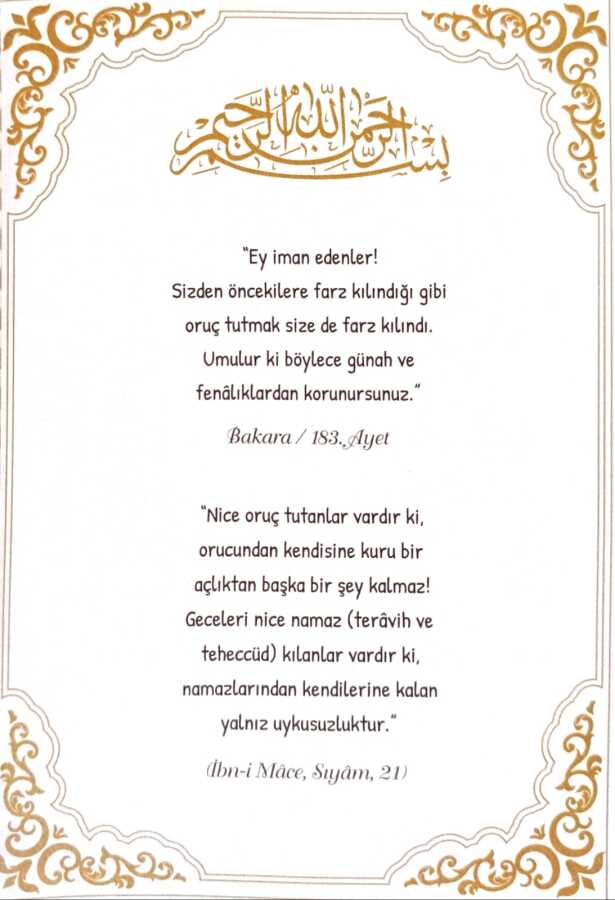 بسم الله الرحمن الرحيم
"Ey iman edenler!
Sizden öncekilere farz kılındığı gibi
oruç tutmak size de farz kılındı.
Umulur ki böylece günah ve
fenâlıklardan korunursunuz."
Bakara / 183. Ayet
"Nice oruç tutanlar vardır ki,
orucundan kendisine kuru bir
açlıktan başka bir şey kalmaz!
Geceleri nice namaz (terâvih ve
teheccüd) kılanlar vardır ki,
namazlarından kendilerine kalan
yalnız uykusuzluktur."
(İbn-i Mâce, Sıyâm, 21)